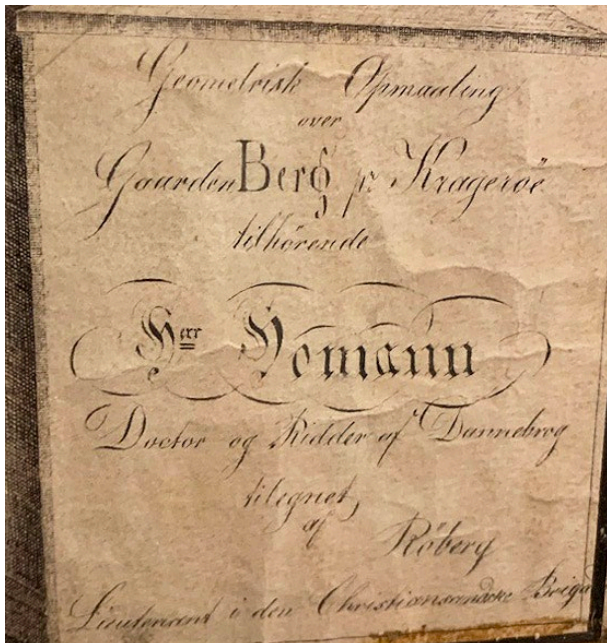 Geometrisk Opmaaling
over
Gaarden Berg pr Kragerøe
tilhørende
Herr Homann
Doctor og Ridder af Dannebrog
tilegnet
af
Røberg
Lieutenant i den Christiansandske Briga